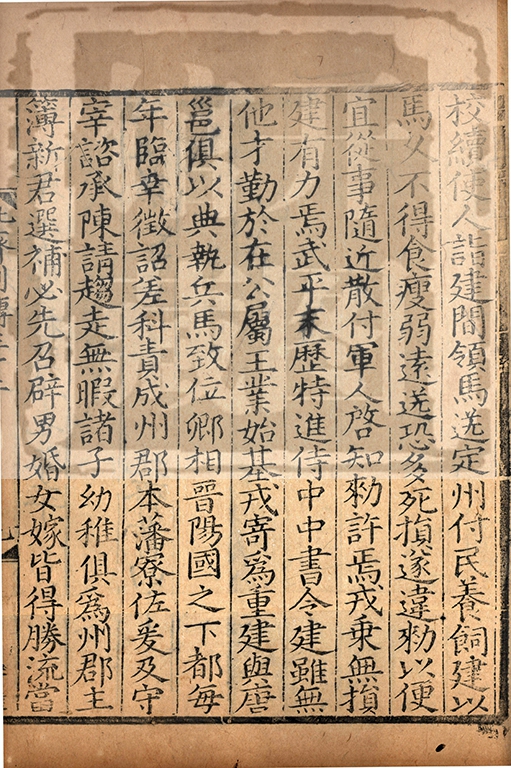 校續使人詣建間領馬送定州付民養飼建以
馬久不得食瘦弱遠送恐多死損遂違勑以便
宜從事隨近散付軍人啓知勑許焉戎乗無損
建有力焉武平末歴特進侍中中書令建雖無
他才勤於在公屬王業始基戎寄為重建與唐
邕俱以典執兵馬致位卿相晉陽國之下都每
年臨幸徵詔差科責成州郡本藩寮佐爰及守
宰諮承陳請趨走無暇諸子幼稚俱為州郡主
簿新君選補必先召辟男婚女嫁皆得勝流當